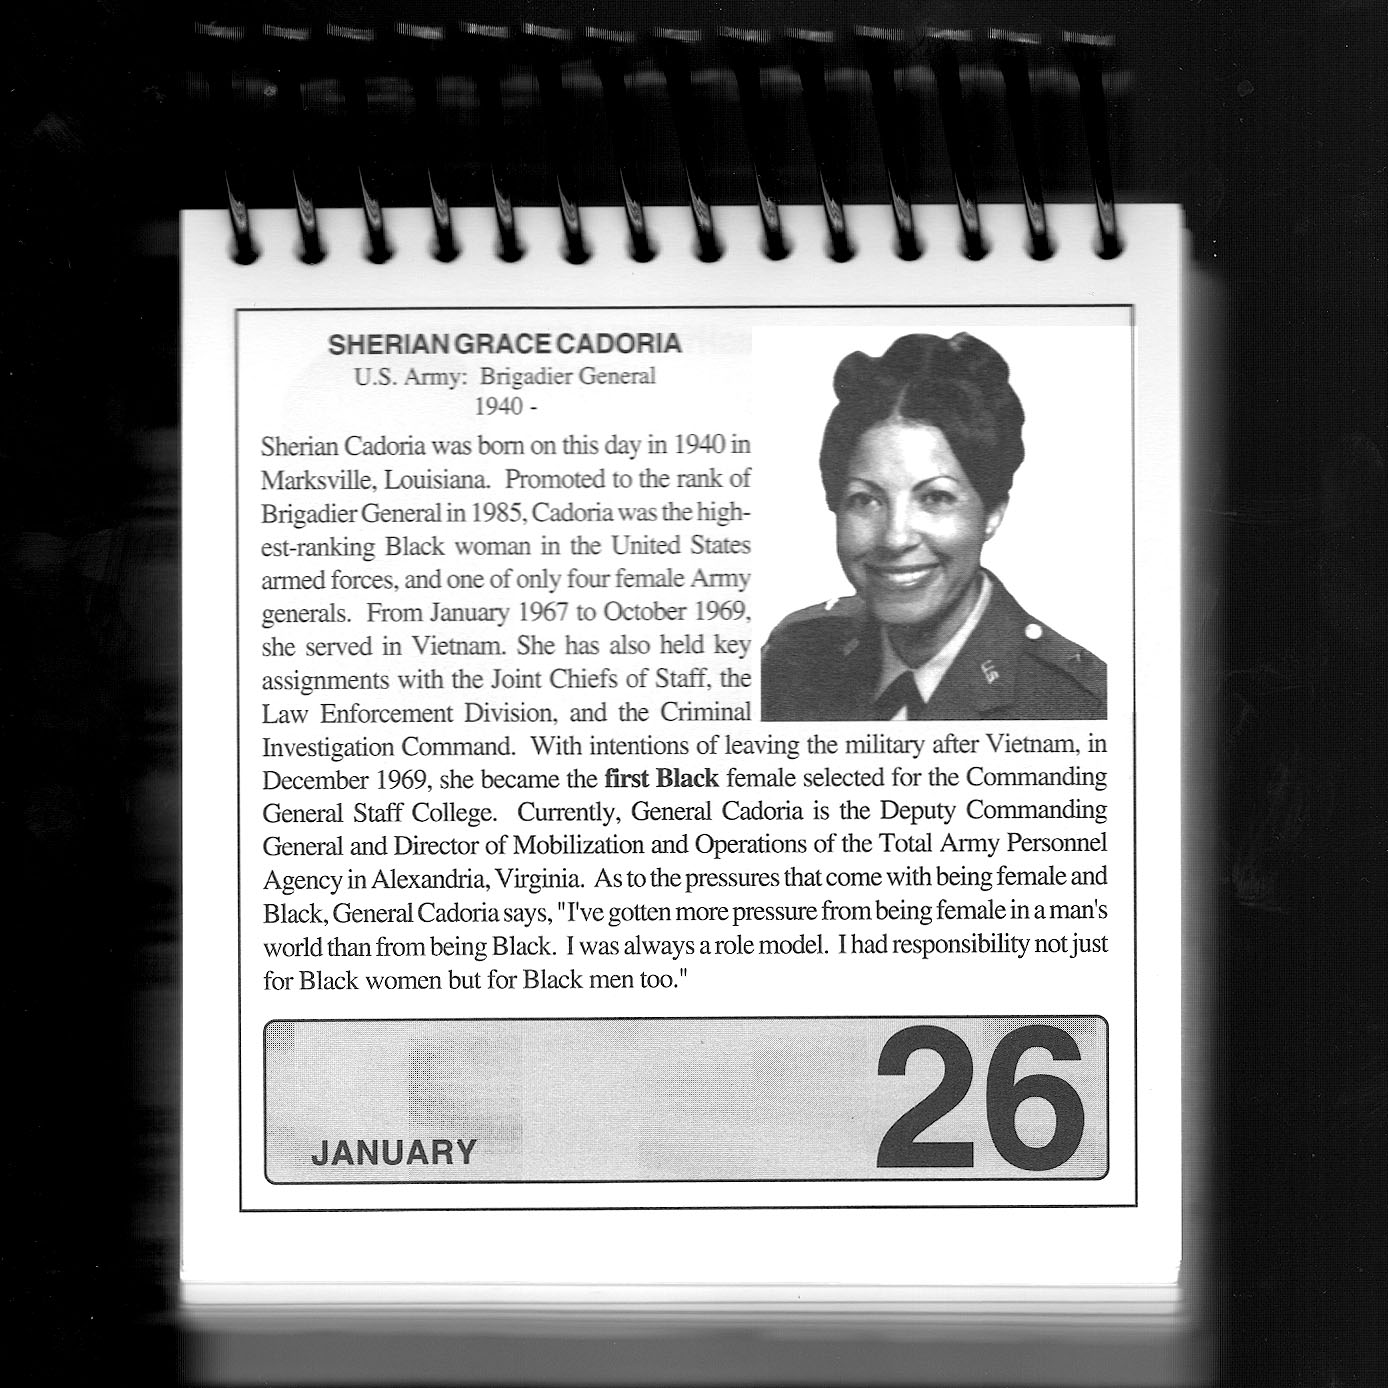 SHERIAN GRACE CADORIA
U.S. Army: Brigadier General
1940 -
Sherian Cadoria was born on this day in 1940 in
Marksville, Louisiana. Promoted to the rank of
Brigadier General in 1985, Cadoria was the high-
est-ranking Black woman in the United States
armed forces, and one of only four female Army
generals. From January 1967 to October 1969,
she served in Vietnam. She has also held key
assignments with the Joint Chiefs of Staff, the
Law Enforcement Division, and the Criminal
Investigation Command. With intentions of leaving the military after Vietnam, in
December 1969, she became the first Black female selected for the Commanding
General Staff College. Currently, General Cadoria is the Deputy Commanding
General and Director of Mobilization and Operations of the Total Army Personnel
Agency in Alexandria, Virginia. As to the pressures that come with being female and
Black, General Cadoria says, "I've gotten more pressure from being female in a man's
world than from being Black. I was always a role model. I had responsibility not just
for Black women but for Black men too."
JANUARY 26